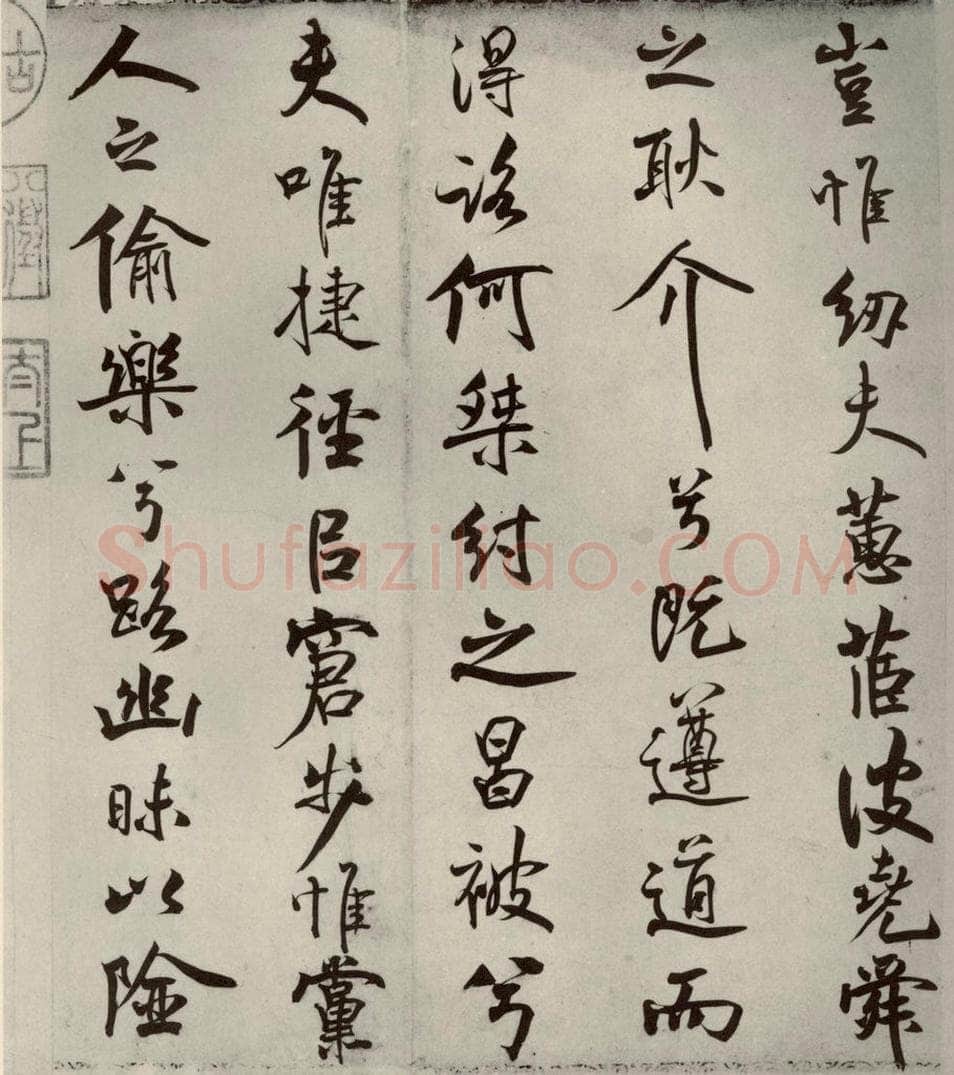 豈惟紉夫蕙茝彼堯舜
之耿介兮既遵道而
得路何桀紂之昌被兮
夫唯捷徑㠯窘步惟黨
人之偷樂兮路幽昧以險
Shufaziliao.COM